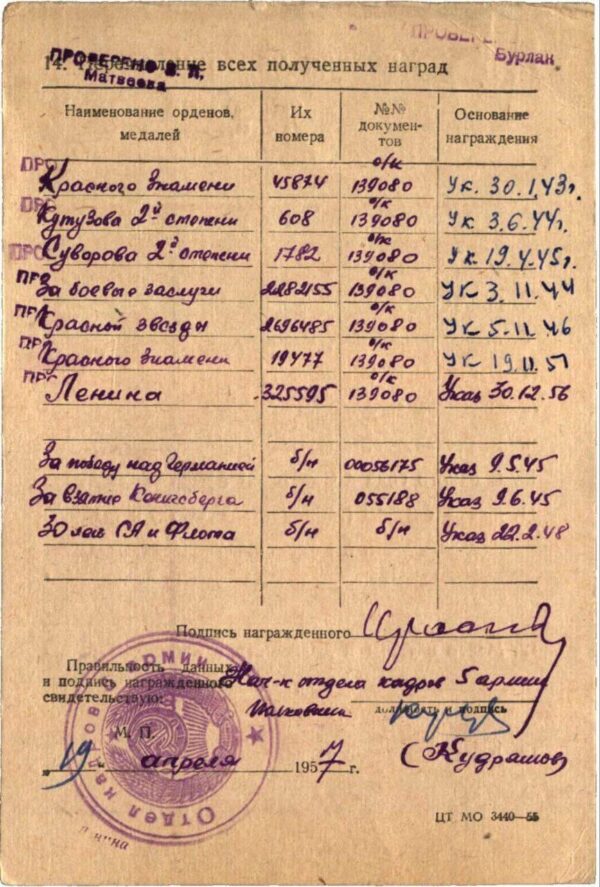 ПРОВЕРЕНО В. П.
Матвеева
Бурлак
14. Перечисление всех полученных наград
Наименование орденов, медалей | Их номера | №№ документов | Основание награждения
Красного Знамени | 45874 | о/к 139080 | Ук. 30.1.43г.
Кутузова 2й степени | 608 | о/к 139080 | Ук. 3.6.44г.
Суворова 2й степени | 1782 | о/к 139080 | Ук 19.4.45г.
За боевые заслуги | 2282155 | о/к 139080 | Ук 3.11.44
Красной звезды | 2696485 | о/к 139080 | Ук 5.11.46
Красного Знамени | 19477 | о/к 139080 | Ук 19.11.51
Ленина | 325595 | о/к 139080 | Указ 30.12.56
За победу над Германией | б/н | 00056175 | Указ 9.5.45
За взятие Кенигсберга | б/н | 055188 | Указ 9.6.45
30 лет СА и Флота | б/н | б/н | Указ 22.2.48
Подпись награжденного
Правильность данных
и подпись награжденного
свидетельствую:
Нач-к отдела кадров 5 армии
Полковник
должность и подпись
М. П.
(Кудряшов)
„19" апреля 1957 г.
Отдел кадров
ЦТ МО 3440—55